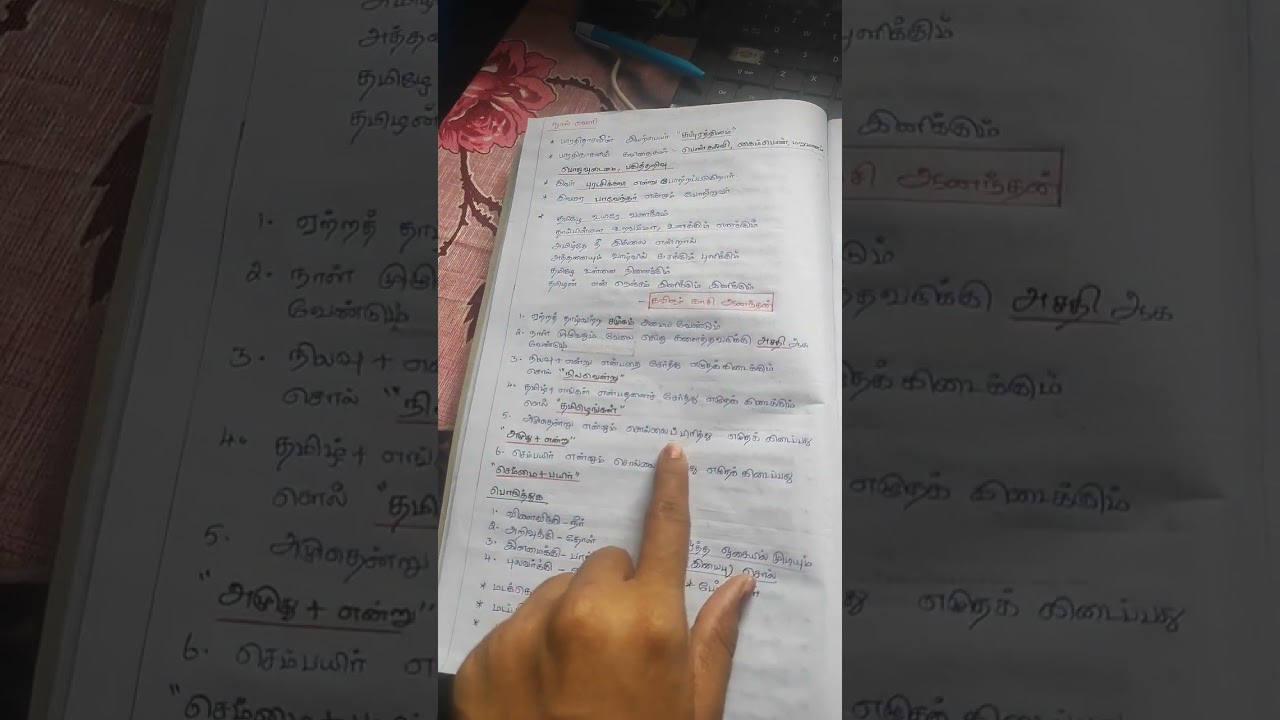 நூல் வெளி
* பாரதிதாசனின் இயற்பெயர் "சுப்புரத்தினம்"
* பாரதிதாசனின் கவிதைகள் - பெண்கல்வி, கைம்பெண் மறுமணம்
பொதுவுடைமை, பகுத்தறிவு
* இவர் புரட்சிக்கவி என்று போற்றப்படுகிறார்
* இவரை பாவேந்தர் என்றும் போற்றுவர்
* தமிழே உயிரே வணக்கம்
தாய்பிள்ளை உறவம்மா, உனக்கும் எனக்கும்
அமிழ்தே நீ இல்லை என்றால்
அத்தனையும் வாழ்வில் கசக்கும் புளிக்கும்
தமிழே உன்னை நினைக்கும்
தமிழன் என் நெஞ்சம் இனிக்கும் இனிக்கும்
- கவிஞர் காசி ஆனந்தன்
1. ஏற்றத் தாழ்வற்ற சமூகம் அமைய வேண்டும்
2. நாள் முழுவதும் வேலை செய்து களைத்தவருக்கு அசதி ஆக
வேண்டும்
3. நிலவு + என்று என்பதை சேர்த்து எழுதக் கிடைக்கும்
சொல் "நிலவென்று"
4. தமிழ் + எங்கள் என்பதனைச் சேர்த்து எழுதக் கிடைக்கும்
சொல் "தமிழெங்கள்"
5. அமுதென்று என்னும் சொல்லைப் பிரித்து எழுதக் கிடைப்பது
"அமுது + என்று"
6. செம்பயிர் என்னும் சொல்லை எழுதக் கிடைப்பது
"செம்மை + பயிர்"
பொருத்துக
1. விளைவுக்கு - நீர்
2. அறிவுக்கு - தோள்
3. இளமைக்கு - பால்
4. புலவர்க்கு -
ஓசையில் முடியும்
சொல்